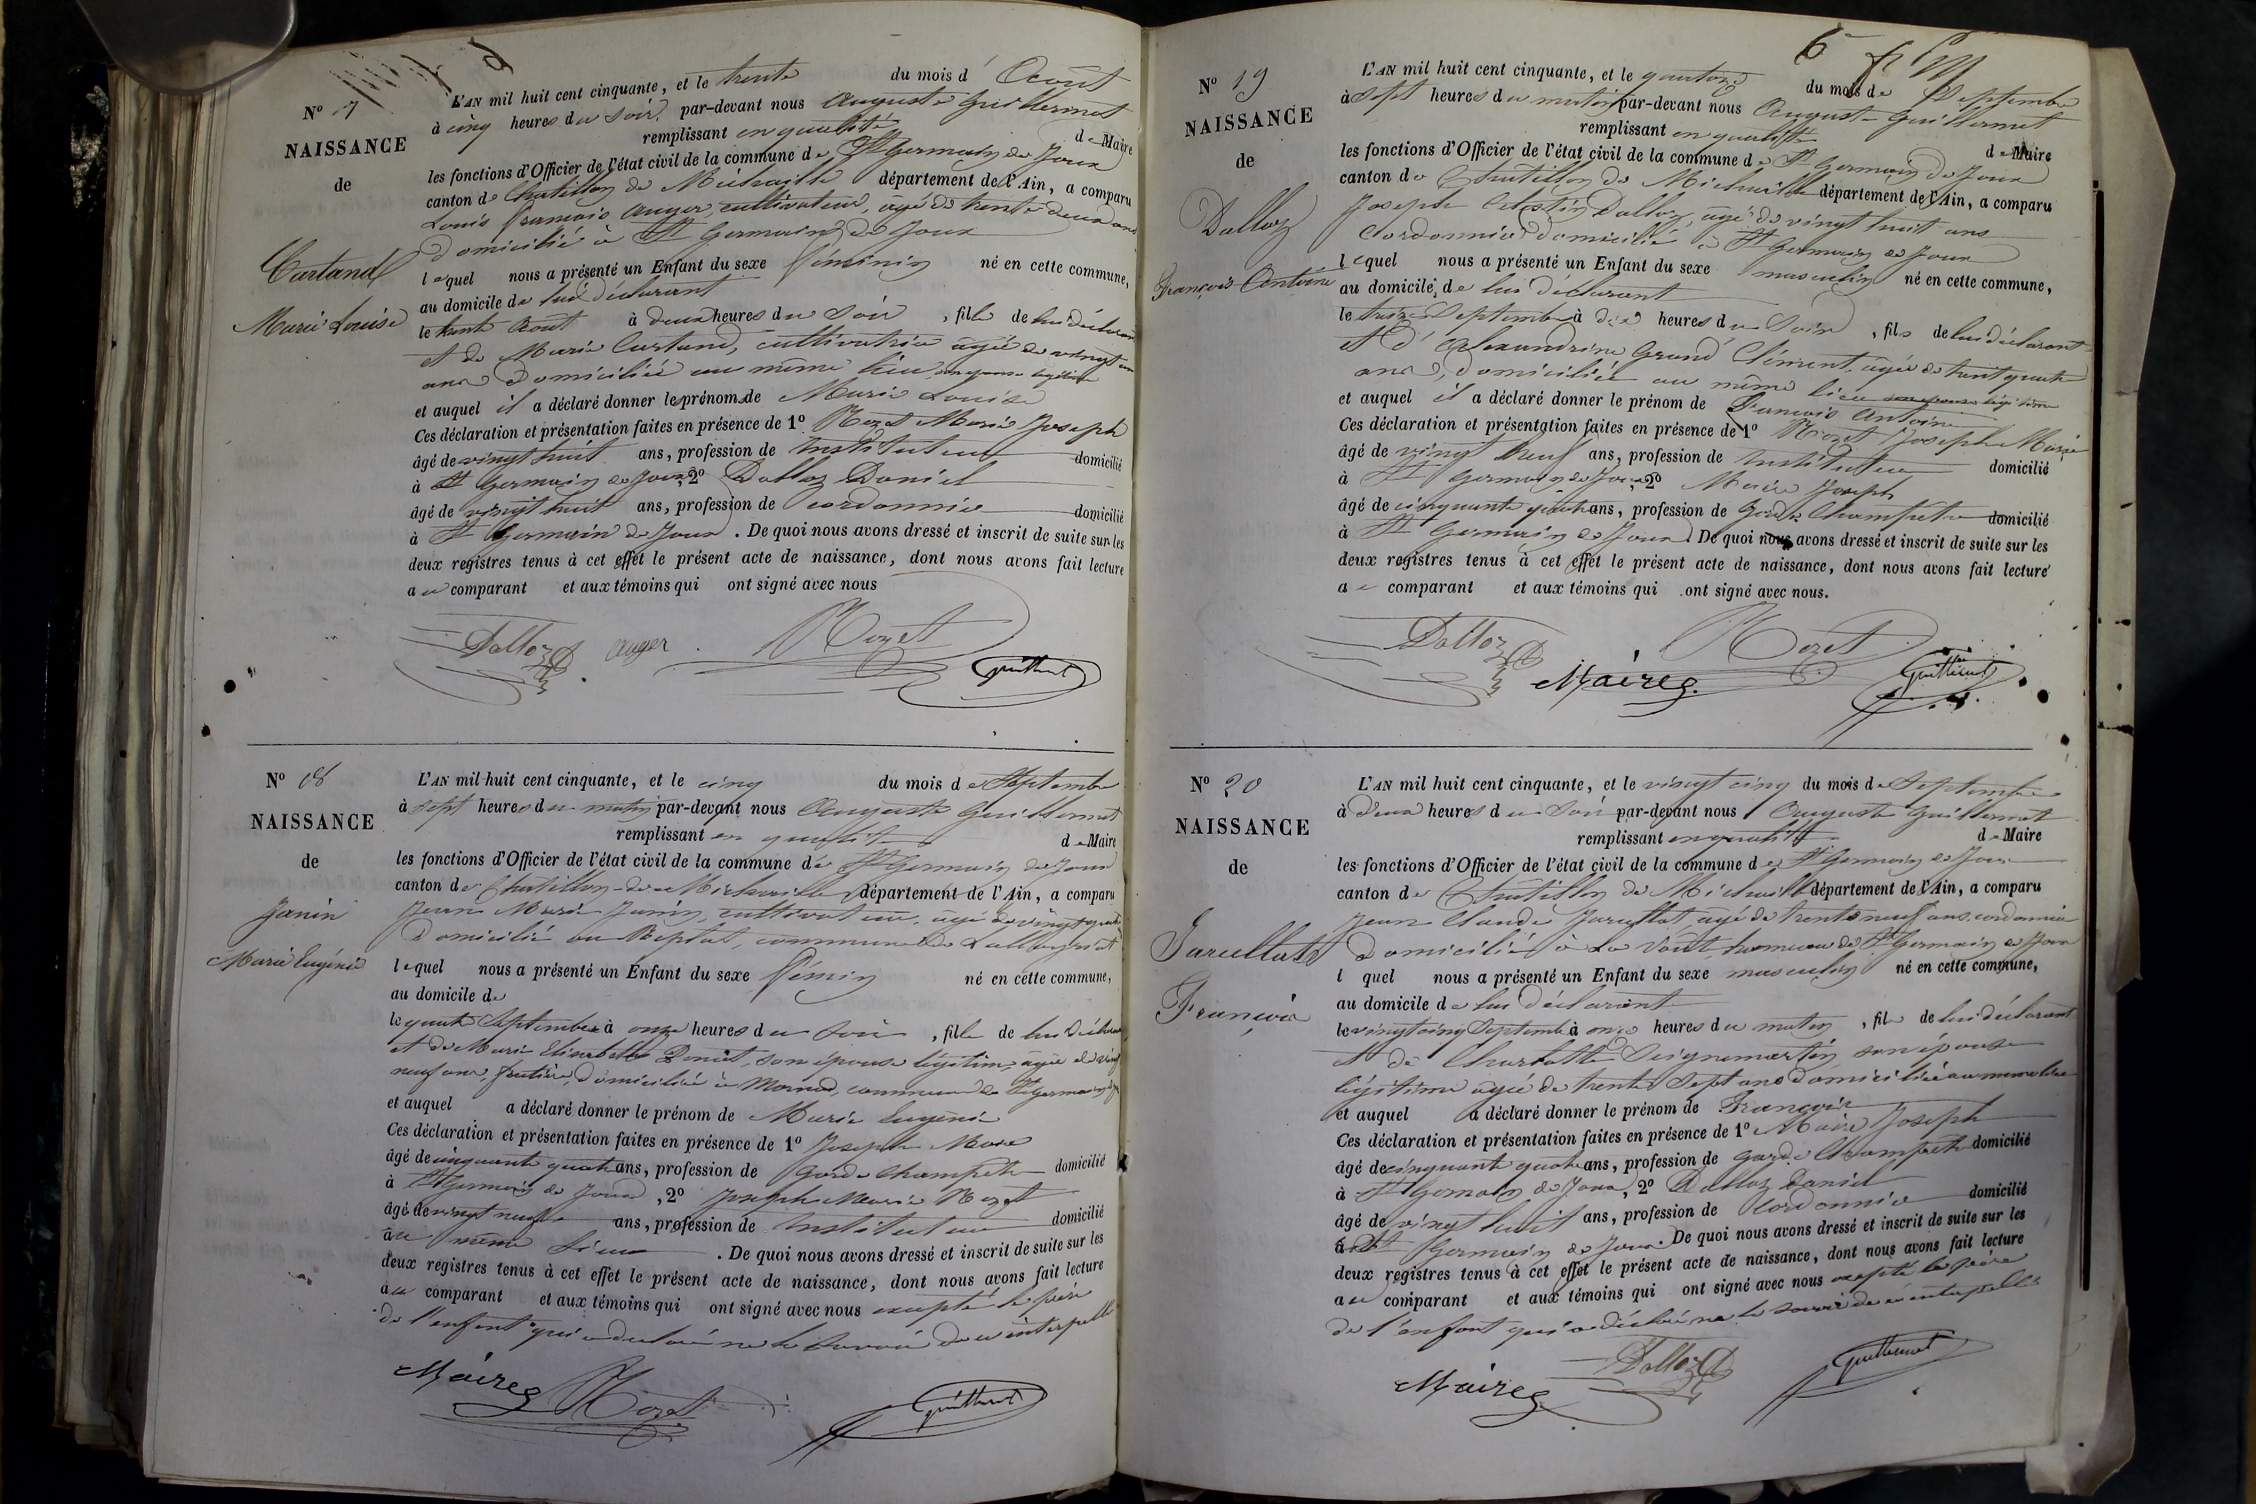 6
N° 17
NAISSANCE
de
Cartand
Marie Louise
L'AN mil huit cent cinquante, et le trente du mois d' Août
à cinq heures du soir par-devant nous Auguste Guillermet
remplissant en qualité de Maire
les fonctions d'Officier de l'état civil de la commune de St Germain de Joux
canton de Chatillon de Michaille département de l'Ain, a comparu
Louis François Auger, cultivateur, âgé de trente deux ans
domicilié à St Germain de Joux
lequel nous a présenté un Enfant du sexe féminin né en cette commune,
au domicile de lui déclarant
le trente Août à deux heures du soir, fille de lui déclarant
et de Marie Cartand, cultivatrice âgée de vingt
ans domiciliée au même lieu, son épouse légitime
et auquel il a déclaré donner les prénoms de Marie Louise
Ces déclaration et présentation faites en présence de 1° Rozet Marie Joseph
âgé de vingt huit ans, profession de Instituteur domicilié
à St Germain de Joux, 2° Dalloz Daniel
âgé de vingt huit ans, profession de cordonnier domicilié
à St Germain de Joux. De quoi nous avons dressé et inscrit de suite sur les
deux registres tenus à cet effet le présent acte de naissance, dont nous avons fait lecture
au comparant et aux témoins qui ont signé avec nous
Dalloz Auger Rozet
Guillermet
N° 18
NAISSANCE
de
Janin
Marie Eugénie
L'AN mil huit cent cinquante, et le cinq du mois de Septembre
à sept heures du matin par-devant nous Auguste Guillermet
remplissant en qualité de Maire
les fonctions d'Officier de l'état civil de la commune de St Germain de Joux
canton de Chatillon de Michaille département de l'Ain, a comparu
Jean Marie Janin, cultivateur, âgé de vingt quatre
domicilié au commune de Lalleyriat
lequel nous a présenté un Enfant du sexe fémin né en cette commune,
au domicile de
le quatre Septembre à onze heures du soir, fille de lui déclarant
et de Marie Elisabeth Benoit, son épouse légitime, âgée de vingt
neuf ans, domiciliée à Mornod, commune de St germain
et auquel a déclaré donner le prénom de Marie Eugénie
Ces déclaration et présentation faites en présence de 1° Joseph Maire
âgé de cinquante quatre ans, profession de Garde Champêtre domicilié
à St Germain de Joux, 2° Joseph Marie Rozet
âgé de vingt neuf ans, profession de Instituteur domicilié
au même lieu. De quoi nous avons dressé et inscrit de suite sur les
deux registres tenus à cet effet le présent acte de naissance, dont nous avons fait lecture
au comparant et aux témoins qui ont signé avec nous excepté le père
de l'enfant qui a déclaré ne le savoir de ce interpellé
Maire Rozet
Guillermet
6
N° 19
NAISSANCE
de
Dalloz
François Antoine
L'AN mil huit cent cinquante, et le quatorze du mois de Septembre
à sept heures du matin par-devant nous Auguste Guillermet
remplissant en qualité de Maire
les fonctions d'Officier de l'état civil de la commune de St Germain de Joux
canton de Chatillon de Michaille département de l'Ain, a comparu
Joseph Célestin Dalloz, âgé de vingt huit ans
Cordonnier domicilié à St Germain de Joux
lequel nous a présenté un Enfant du sexe masculin né en cette commune,
au domicile de lui déclarant
le treize Septembre à dix heures du soir, fils de lui déclarant
et d'Alexandrine Grand Clément, âgée de trente quatre
ans, domiciliée au même lieu son épouse légitime
et auquel il a déclaré donner le prénom de François Antoine
Ces déclaration et présentation faites en présence de 1° Rozet Joseph Marie
âgé de vingt neuf ans, profession de Instituteur domicilié
à St Germain de Joux, 2° Maire Joseph
âgé de cinquante quatre ans, profession de Garde Champêtre domicilié
à St Germain de Joux. De quoi nous avons dressé et inscrit de suite sur les
deux registres tenus à cet effet le présent acte de naissance, dont nous avons fait lecture
a comparant et aux témoins qui ont signé avec nous.
Dalloz Rozet
Maire Guillermet
N° 20
NAISSANCE
de
François
L'AN mil huit cent cinquante, et le vingt cinq du mois de Septembre
à deux heures du soir par-devant nous Auguste Guillermet
remplissant en qualité de Maire
les fonctions d'Officier de l'état civil de la commune de St Germain de Joux
canton de Chatillon de Michaille département de l'Ain, a comparu
Jean Claude âgé de trente neuf ans cordonnier
domicilié à La Voûte, hameau de St Germain de Joux
l quel nous a présenté un Enfant du sexe masculin né en cette commune,
au domicile de lui déclarant
le vingt cinq Septembre à onze heures du matin, fils de lui déclarant
et de Charlotte Seignemartin son épouse
légitime âgée de trente sept ans domiciliée au même lieu
et auquel a déclaré donner le prénom de François
Ces déclaration et présentation faites en présence de 1° Maire Joseph
âgé de cinquante quatre ans, profession de Garde Champêtre domicilié
à St Germain de Joux, 2° Dalloz Daniel
âgé de vingt huit ans, profession de Cordonnier domicilié
à St Germain de Joux. De quoi nous avons dressé et inscrit de suite sur les
deux registres tenus à cet effet le présent acte de naissance, dont nous avons fait lecture
au comparant et aux témoins qui ont signé avec nous excepté le père
de l'enfant qui a déclaré ne le savoir de ce interpellé
Dalloz Guillermet
Maire